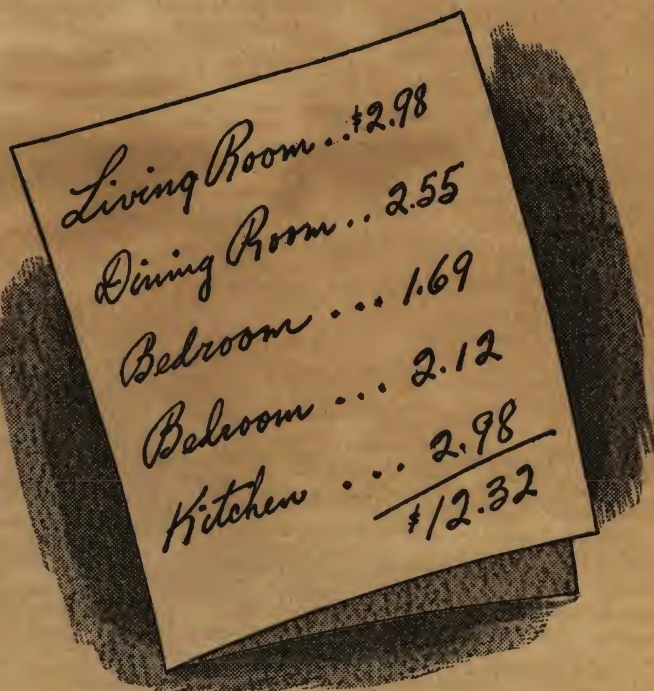 Living Room..$2.98
Dining Room.. 2.55
Bedroom ... 1.69
Bedroom ... 2.12
Kitchen ... 2.98
$12.32